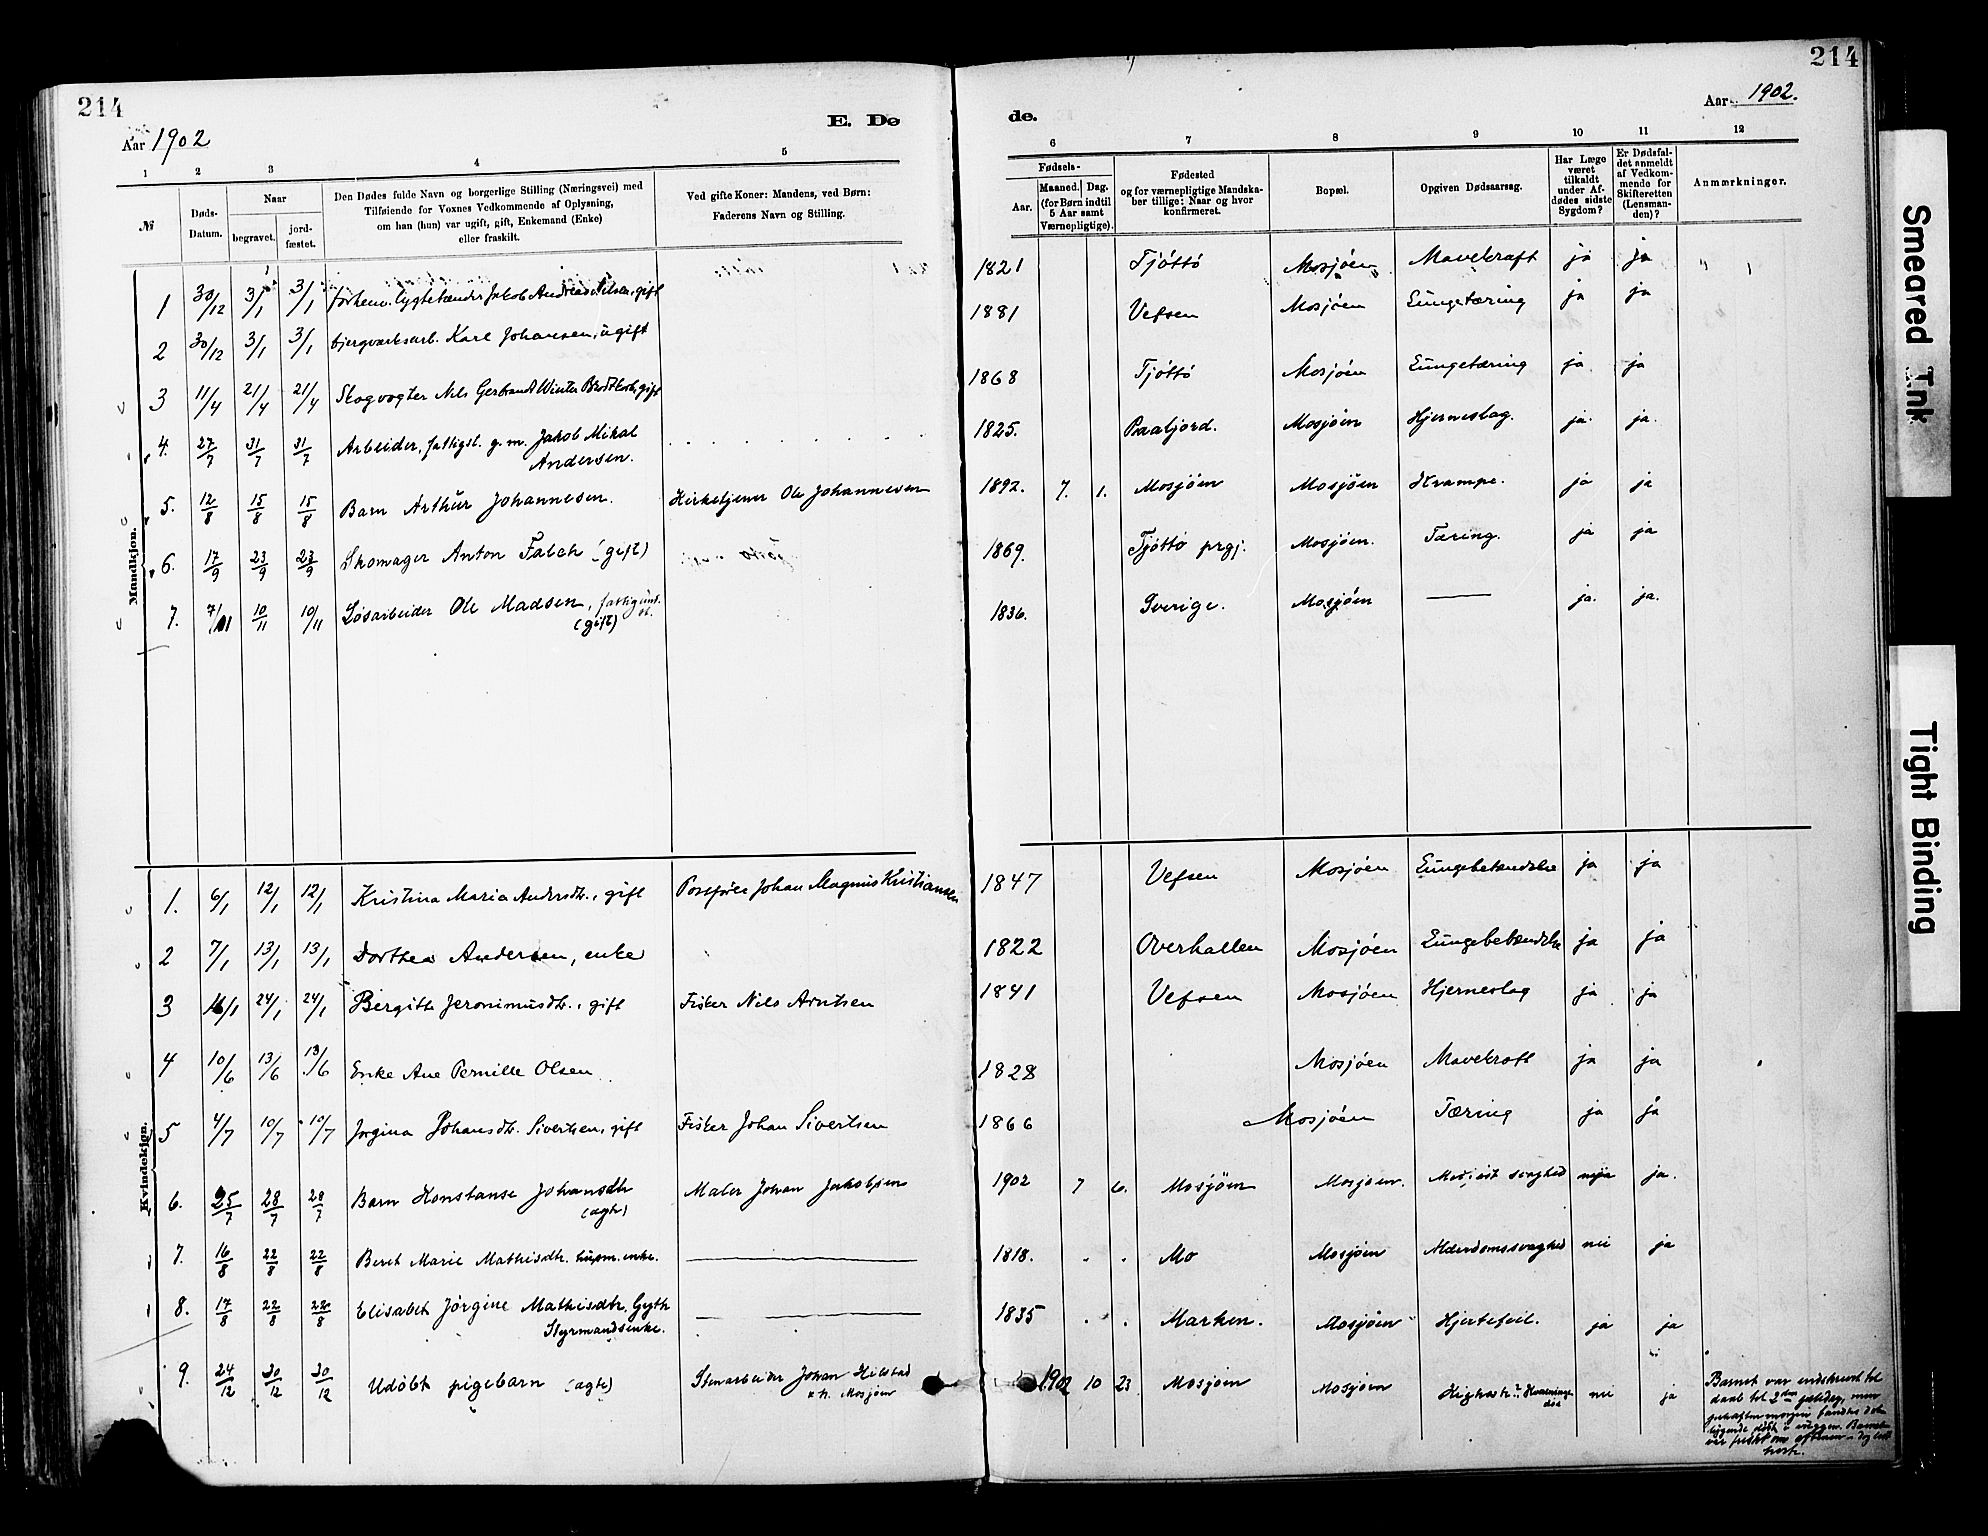 214
Aar 1902
E. Dø
1 2 3 4 5
№
Døds-Datum.
Naar
begravet.
jord-fæstet.
Den Dødes fulde Navn og borgerlige Stilling (Næringsvei) med
Tilføiende for Voxnes Vedkommende af Oplysning,
om han (hun) var ugift, gift, Enkemand (Enke)
eller fraskilt.
Ved gifte Koner: Mandens, ved Børn:
Faderens Navn og Stilling.
Mandkjøn.
1 30/12 3/1 3/1 Jakob Andreas Nilsen, gift
2 30/12 3/1 3/1 bjergværksarb. Karl Johansen, ugift
3 11/4 21/4 21/4 Skogvogter Nils Gerbrandt Winter Brodtkorb, gift
4. 27/7 31/7 31/7 Arbeider, fattigl. g. m. Jakob Mikal
Andersen.
5. 12/8 15/8 15/8 Barn Arthur Johannesen. Kirketjener Ole Johannesen
6. 17/9 23/9 23/9 Skomager Anton Falch (gift)
7. 7/11 10/11 10/11 Løsarbeider Ole Madsen, fattigunt.
(gift)
Kvindekjøn.
1. 6/1 12/1 12/1 Kristina Maria Andersdtr., gift Postfører Johan Magnus Kristiansen
2 7/1 13/1 13/1 Dorthea Andersen, enke
3 16/1 24/1 24/1 Bergitte Jeronimusdtr., gift Fisker Nils Arntsen
4 10/6 13/6 13/6 Enke Ane Pernille Olsen
5 4/7 10/7 10/7 Jørgina Johansdtr. Sivertsen, gift Fisker Johan Sivertsen
6. 25/7 28/7 28/7 Barn Konstanse Johansdtr Maler Johan Jakobsen
(ægte)
7. 16/8 22/8 22/8 Beret Marie Mathisdtr. husm. enke.
8. 17/8 22/8 22/8 Elisabet Jørgine Mathisdtr. Gyth
Styrmandsenke.
9. 24/12 30/12 30/12 Udøbt pigebarn (ægte) Stenarbeider Johan Hilstad
Mosjøen
214
de.
Aar 1902.
6 7 8 9 10 11 12
Fødsels-
Aar.
Maaned. Dag.
(for Børn indtil
5 Aar samt
Værnepligtige).
Fødested
og for værnepligtige Mandska-
ber tillige: Naar og hvor
konfirmeret.
Bopæl.
Opgiven Dødsaarsag.
Har Læge
været
tilkaldt
under Af-
dødes sidste
Sygdom?
Er Dødsfal-
det anmeldt
af Vedkom-
mende for
Skifteretten
(Lensman-
den)?
Anmærkninger.
1821 Tjøttø Mosjøen Mavekræft ja ja
1881 Vefsen Mosjøen Lungetæring ja ja
1868 Tjøttø Mosjøen Lungetæring ja ja
1825. Mosjøen Hjerneslag. ja. ja.
1892. 7. 1. Mosjøen Mosjøen Krampe. ja ja
1869. Tjøttø prgj. Mosjøen. Tæring. ja ja
1836. Sverige. Mosjøen ja. ja.
1847 Vefsen Mosjøen Lungebetændelse ja ja
1822 Overhallen Mosjøen Lungebetændelse ja ja
1841 Vefsen Mosjøen Hjerneslag ja ja
1828 Mosjøen Mavekræft ja ja
1866 Mosjøen Tæring ja ja
1902 7 6. Mosjøen Mosjøen. Medfødt svaghed ja ja.
1818. Mo Mosjøen Alderdomssvaghed nei ja
1835 Marken. Mosjøen Hjertefeil. ja ja
1902 10 23 Mosjøen Mosjøen nei ja
Barnet var indskrevet til
daab til 2den juledag, men
Smeared Ink
Tight Binding